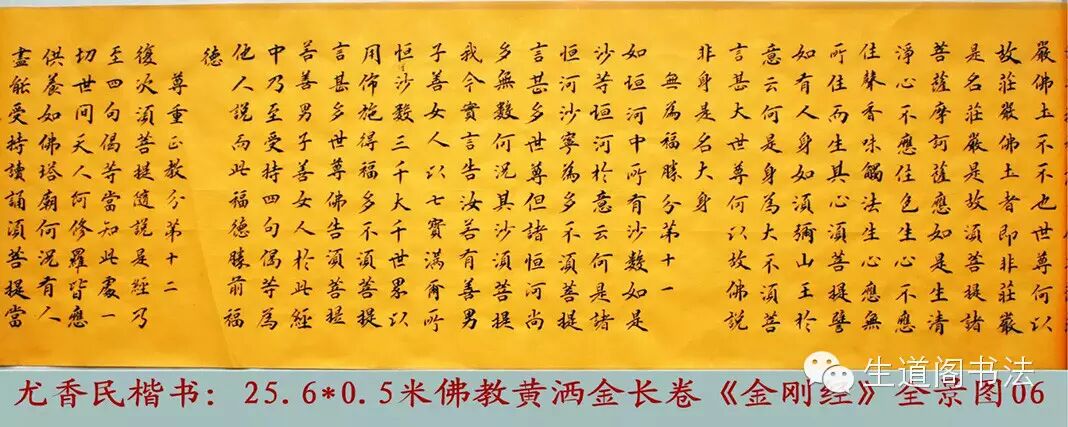 嚴佛土不不不也世尊何以
故莊嚴佛土者即非莊嚴
是名莊嚴是故須菩提諸
菩薩摩訶薩應如是生清
淨心不應住色生心不應
住聲香味觸法生心應無
所住而生其心須菩提譬
如有人身如須彌山王於
意云何是身為大不須菩
言甚大世尊何以故佛說
非身是名大身
無為福勝分第十一
如垣河中所有沙數如是
沙等垣河於意云何是諸
恒河沙寧為多不須菩提
言甚多世尊但諸恒河尚
多無數何況其沙須菩提
我今實言告汝若有善男
子善女人以七寶滿爾所
恒沙數三千大千世界以
用佈施得福多不須菩提
言甚多世尊佛告須菩提
善善男子善女人於此經
中乃至受持四句偈等為
他人說而此福德勝前福
德
尊重正教分第十二
復次須菩提隨說是經乃
至四句偈等當知此處一
切世間天人何修羅皆應
供養如佛塔廟何況有人
盡能受持讀誦須菩提當
生道阁书法
尤香民楷书：25.6*0.5米佛教黄洒金长卷《金刚经》全景图06